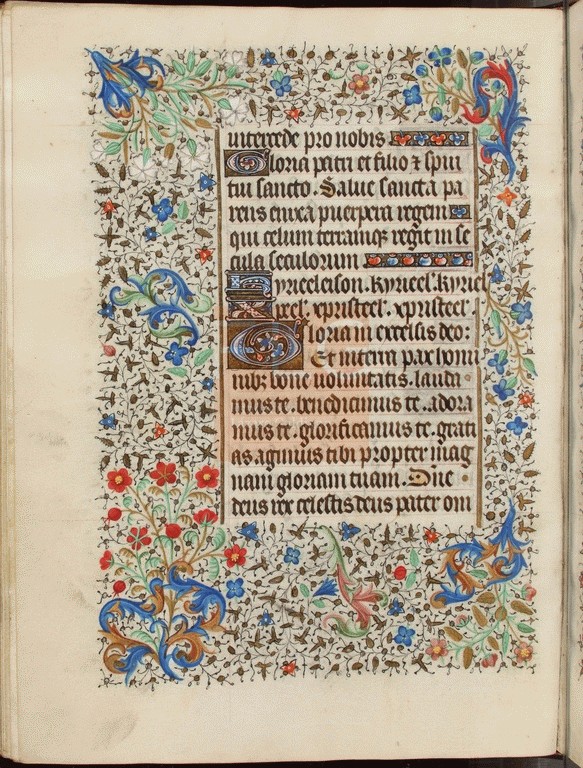 intercede pro nobis
Gloria patri et filio ⁊ spiri
tui sancto. Salue sancta pa
rens enixa puerpera regem
qui celum terramq; regit in se
cula seculorum
Kyrieeleison. kyrieel. kyriel
xpeel. xpristeel. xpristeel.
Gloria in excelsis deo:
Et in terra pax homi
nib; bone uoluntatis. lauda
mus te. benedicimus te. adora
mus te. glorificamus te. grati
as agimus tibi propter mag
nam gloriam tuam. Dne
deus rex celestis deus pater om